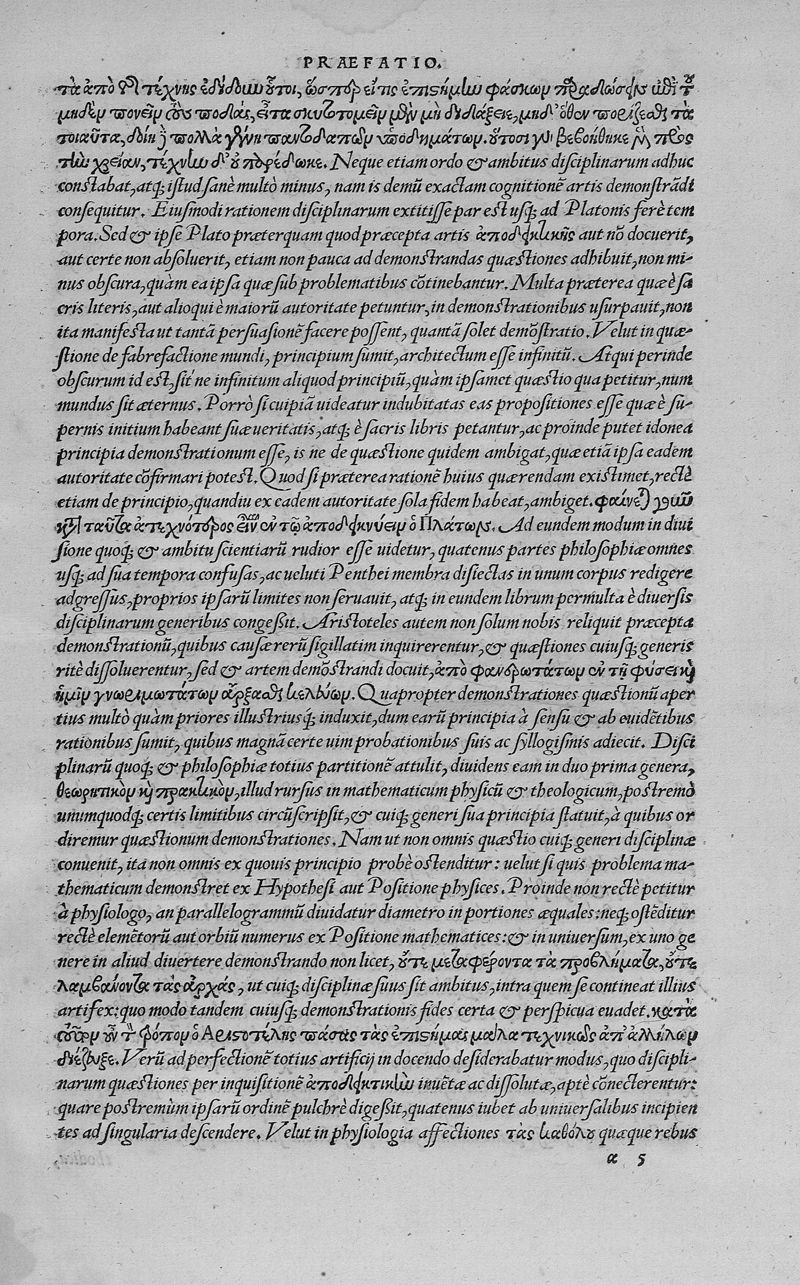 PRAEFATIO.
τὰ ἀπὸ τῆς τέχνης ἐδίδουν οὗτοι, ὥσπερ εἴ τις ἐπιστήμην φάσκων παραδώσειν ἐπὶ τὸ
μηδὲν πονεῖν τοὺς πόδας, εἶτα σκυτοτομεῖν μὲν μὴ διδάξειε, μηδ' ὅθεν πορίζεσθαι τὰ
τοιαῦτα, δοίη δὲ πολλὰ γένη παντοδαπῶν ὑποδημάτων. οὗτοσι γὸ βεβοήθηκε μὲν πρὸς
τὴν χρείαν, τέχνην δ' οὐ παρέδωκε. Neque etiam ordo & ambitus disciplinarum adhuc
constabat, atq; istud sanè multò minus, nam is demũ exactam cognitionẽ artis demonstrãdi
consequitur. Eiusmodi rationem disciplinarum extitisse par est usq; ad Platonis ferè tem
pora. Sed & ipse Plato præterquam quod præcepta artis ἀποδεικτικῆς aut nõ docuerit,
aut certe non absoluerit, etiam non pauca ad demonstrandas quæstiones adhibuit, non mi-
nus obscura, quàm ea ipsa quæ sub problematibus cõtinebantur. Multa præterea quæ è sa
cris literis, aut alioqui è maiorũ autoritate petuntur, in demonstrationibus usurpauit, non
ita manifesta ut tantã persuasionẽ facere possent, quantã solet demõstratio. Velut in quæ-
stione de fabrefactione mundi, principium sumit, architectum esse infinitũ. Atqui perinde
obscurum id est, sit'ne infinitum aliquod principiũ, quàm ipsamet quæstio qua petitur, num
mundus sit æternus. Porrò si cuipiã uideatur indubitatas eas propositiones esse quæ è su-
pernis initium habeant suæ ueritatis, atq; è sacris libris petantur, ac proinde putet idonea
principia demonstrationum esse, is ne de quæstione quidem ambigat, quæ etiã ipsa eadem
autoritate cõfirmari potest. Quod si præterea rationẽ huius quærendam existimet, rectè
etiam de principio, quandiu ex eadem autoritate sola fidem habeat, ambiget. φαίνεται γοῦν
κατὰ ταῦτα ἀτεχνότερος εἶναι ἐν τῷ ἀποδεικνύειν ὁ Πλάτων. Ad eundem modum in diui
sione quoq; & ambitu scientiarũ rudior esse uidetur, quatenus partes philosophiæ omnes
usq; ad sua tempora confusas, ac ueluti Penthei membra disiectas in unum corpus redigere
adgressus, proprios ipsarũ limites non seruauit, atq; in eundem librum permulta è diuersis
disciplinarum generibus congessit. Aristoteles autem non solum nobis reliquit præcepta
demonstrationũ, quibus causæ rerũ sigillatim inquirerentur, & quæstiones cuiusq; generis
ritè dissoluerentur, sed & artem demõstrandi docuit, ἀπὸ φανερωτάτων ἐν τῇ φύσει καὶ
ἡμῖν γνωριμωτάτων ἄρξασθαι κελεύων. Quapropter demonstrationes quæstionũ aper
tius multò quàm priores illustriusq; induxit, dum earũ principia à sensu & ab euidẽtibus
rationibus sumit, quibus magnã certe uim probationibus suis ac syllogismis adiecit. Disci
plinarũ quoq; & philosophiæ totius partitionẽ attulit, diuidens eam in duo prima genera,
θεωρητικὸν καὶ πρακτικὸν, illud rursus in mathematicum physicũ & theologicum, postremò
unumquodq; certis limitibus circũscripsit, & cuiq; generi sua principia statuit, à quibus or
diremur quæstionum demonstrationes. Nam ut non omnis quæstio cuiq; generi disciplinæ
conuenit, ita non omnis ex quouis principio probè ostenditur: uelut si quis problema ma-
thematicum demonstret ex Hypothesi aut Positione physices. Proinde non rectè petitur
à physiologo, an parallelogrammũ diuidatur diametro in portiones æquales: neq; ostẽditur
rectè elemẽtorũ aut orbiũ numerus ex Positione mathematices: & in uniuersum, ex uno ge
nere in aliud diuertere demonstrando non licet, οὔτε μεταφέροντα τὰ προβλήματα, οὔτε
λαμβάνοντα τὰς ἀρχάς, ut cuiq; disciplinæ suus sit ambitus, intra quem se contineat illius
artifex: quo modo tandem cuiusq; demonstrationis fides certa & perspicua euadet. κατὰ
τοῦτον οὖν τὸν τρόπον ὁ Ἀριστοτέλης πάσας τὰς ἐπιστήμας μάλα τεχνικῶς ἀπ' ἀλλήλων
διέζευξε. Verũ ad perfectionẽ totius artificij in docendo desiderabatur modus, quo discipli-
narum quæstiones per inquisitionẽ ἀποδεικτικὴν inuẽtæ ac dissolutæ, aptè cõnecterentur:
quare postremùm ipsarũ ordinẽ pulchrè digessit, quatenus iubet ab uniuersalibus incipien
tes ad singularia descendere. Velut in physiologia affectiones τὰς καθόλου quæque rebus
a 5